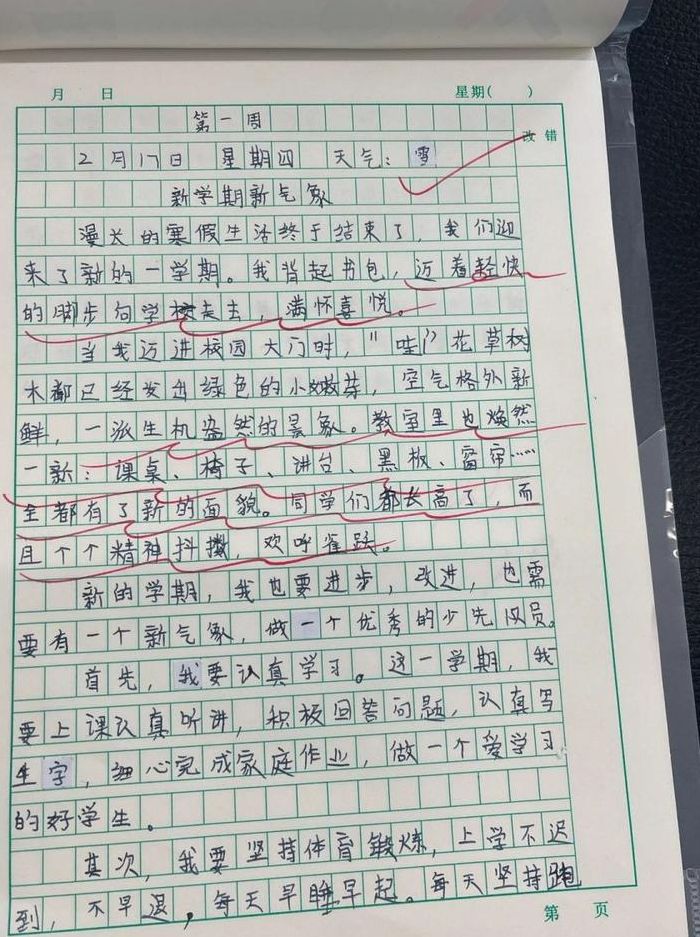 月 日 星期( )
第一周
改错
2月17日 星期四 天气：雪
新学期新气象
漫长的寒假生活终于结束了，我们迎
来了新的一学期。我背起书包，迈着轻快
的脚步向学校走去，满怀喜悦。
当我迈进校园大门时，"哇！"花草树
木都已经发出绿色的小嫩芽，空气格外新
鲜，一派生机盎然的景象。教室里也焕然
一新：课桌、椅子、讲台、黑板、窗帘……
全都有了新的面貌。同学们都长高了，而
且个个精神抖擞，欢呼雀跃。
新的学期，我也要进步，改进，也需
要有一个新气象，做一个优秀的少先队员。
首先，我要认真学习。这一学期，我
要上课认真听讲，积极回答问题，认真写
生字，细心完成家庭作业，做一个爱学习
的好学生。
其次，我要坚持体育锻炼，上学不迟
到，不早退，每天早睡早起。每天坚持跑
第 页